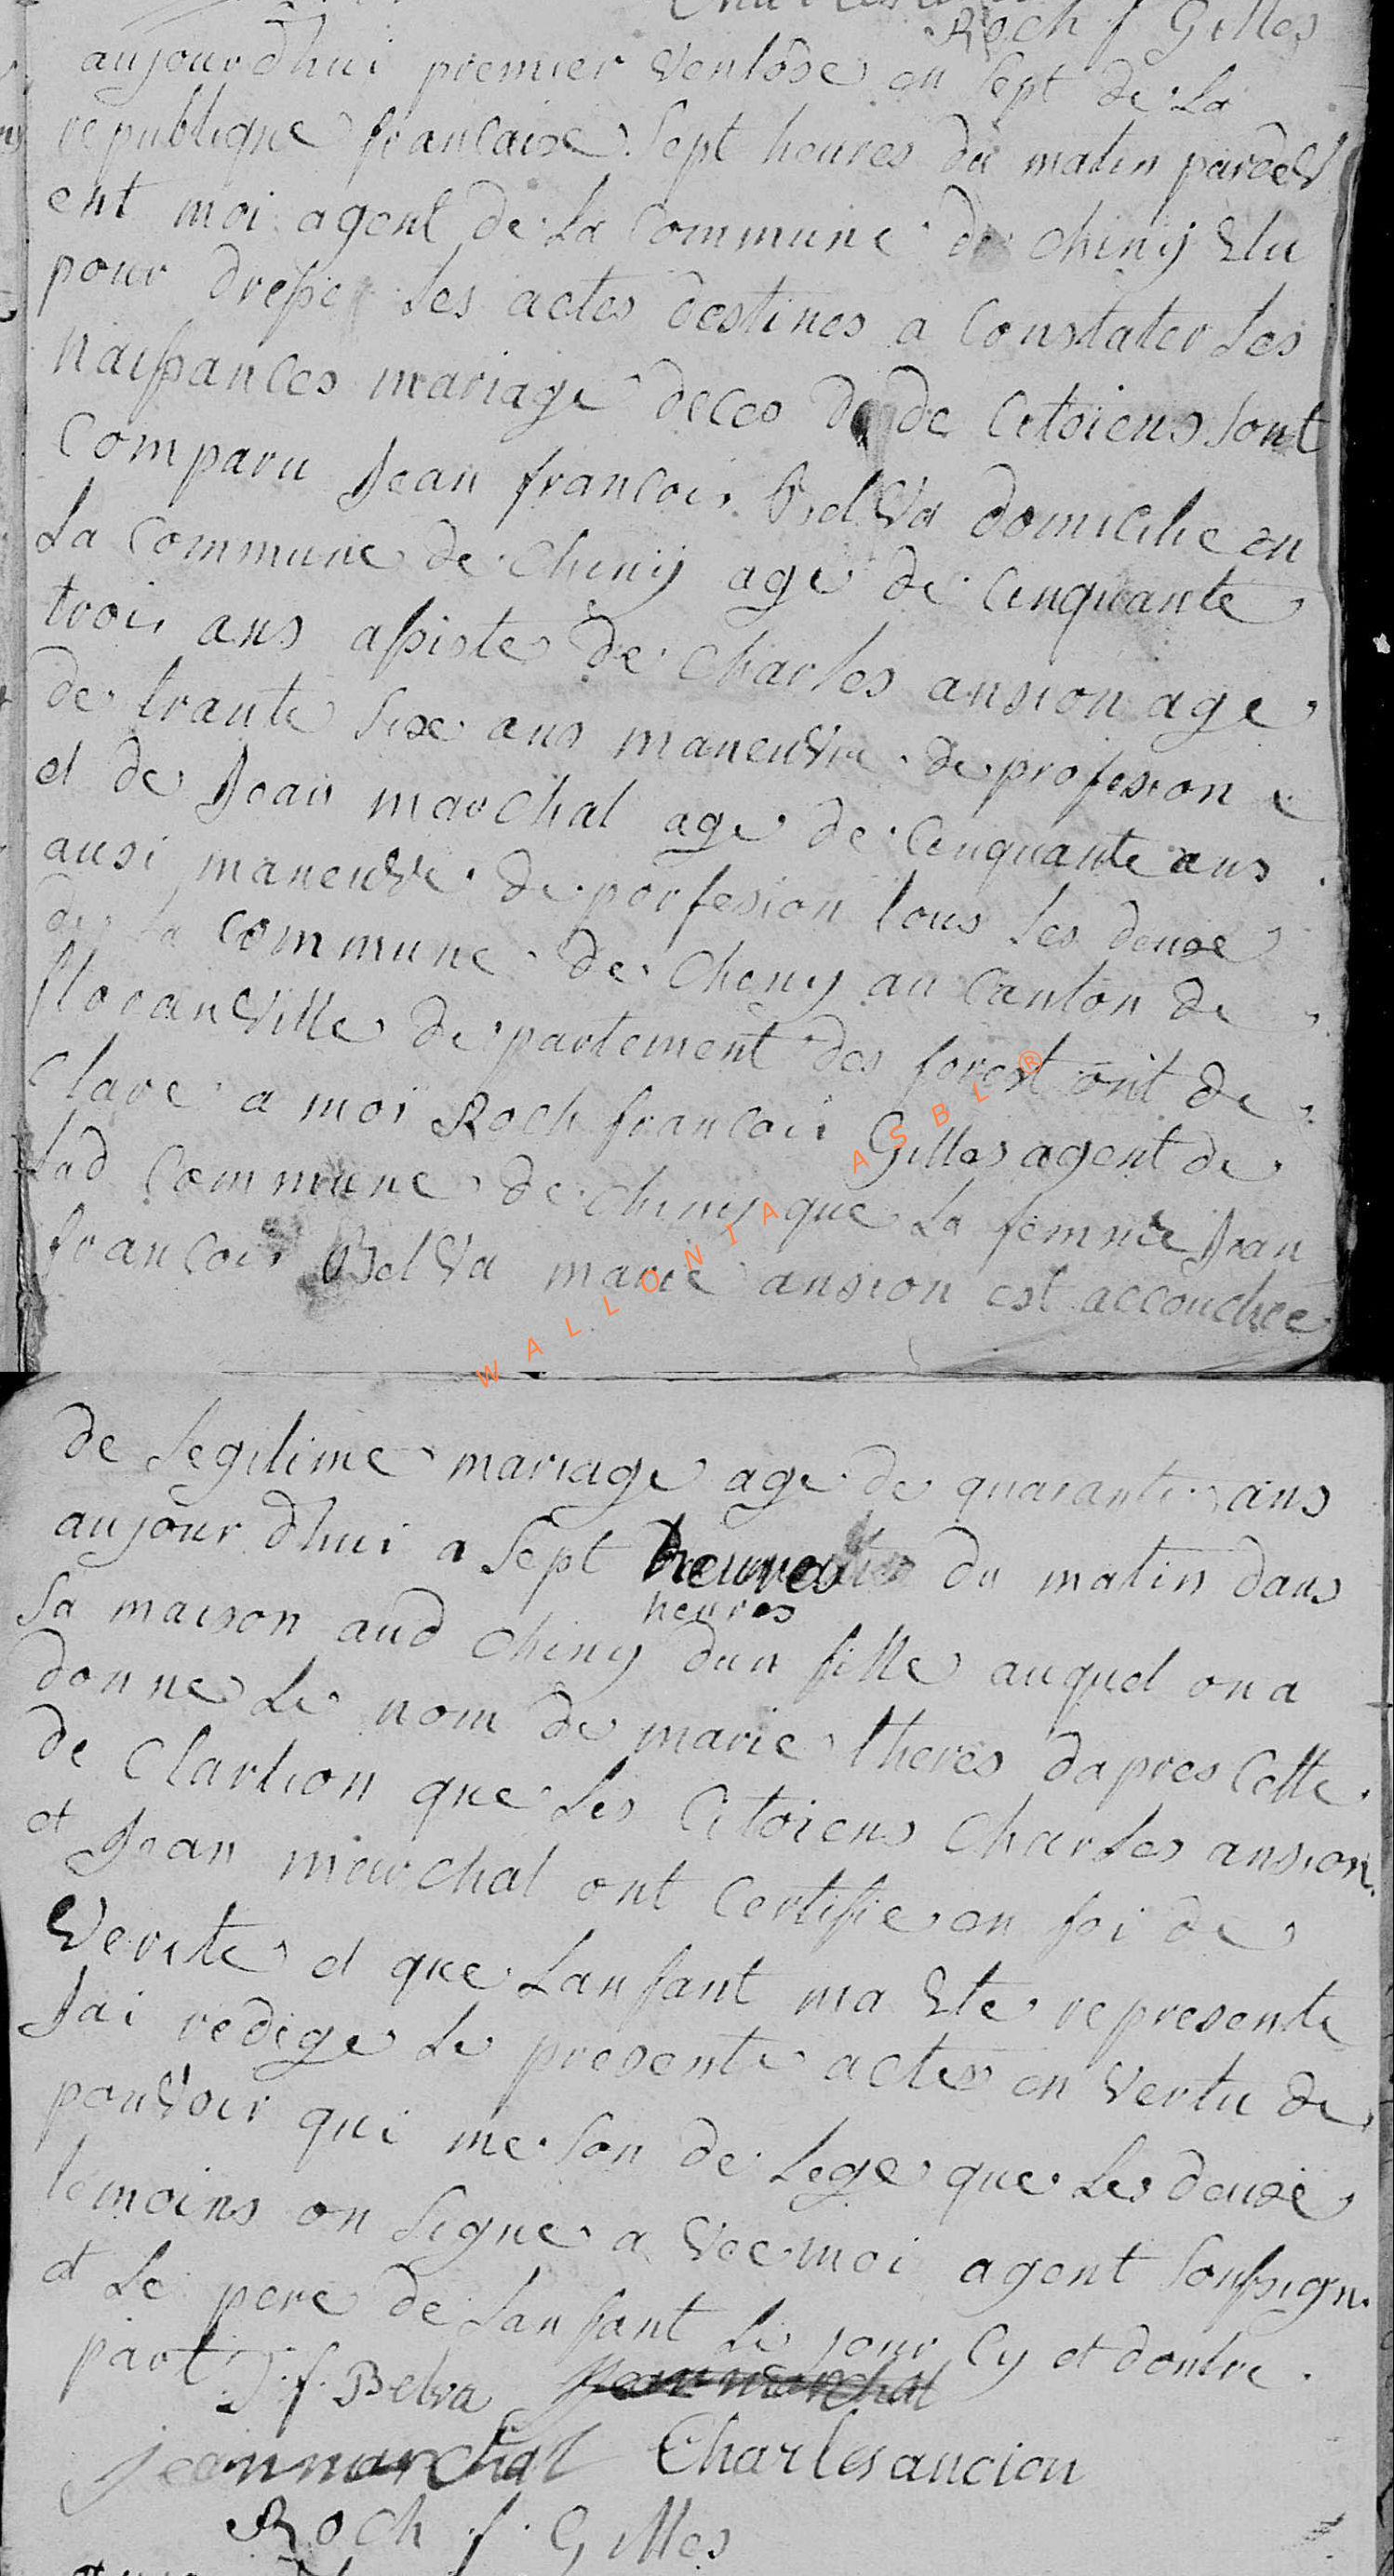 Roch f Gilles
aujourdhui premier Ventose an Sept de La
republique francaise Sept heures du matin pardev
ent moi agent de La Commune de chinij Elu
pour dresser Les actes destines a Constater Les
naissances mariage deces de de Citoiens sont
Comparu Jean francois BelVa domicilie en
La Commune de Chinij age de Cinquante
trois ans assiste de Charles ansion age
de trante Sixe ans maneuvre de profesion
et de Jean marchal age de Cinquante ans
ausi maneuvre de porfesion tous Les deuxe
de La Commune de Cheny au Canton de
floranville departement des forest ont de
Clare a moi Roch francois Gilles agent de
Lad Commune de chiny que La femme Jean
francois BelVa marie ansion est accouchee
WALLONIA ASBL ®
de Legitime mariage age de quarante ans
aujour dhui a Sept heures du matin dans
heures
Sa maison aud chiny dun fille auquel on a
donne Le nom de marie theres dapres Cette
de Clartion que Les Citoiens Charles ansion
et Jean marchal ont Certifie en foi de
Verite et que Lanfant ma Ete represente
Jai redige Le presente actes en Vertu de
pouvoir qui me son de Lege que Les deuxe
temoins on Signe a Vec moi agent Soussign.
et Le pere de Lanfant Le jour Cy et doutre
part J. f. Belva Jean marchal
jean marchal Charles ancion
Roch f. Gilles